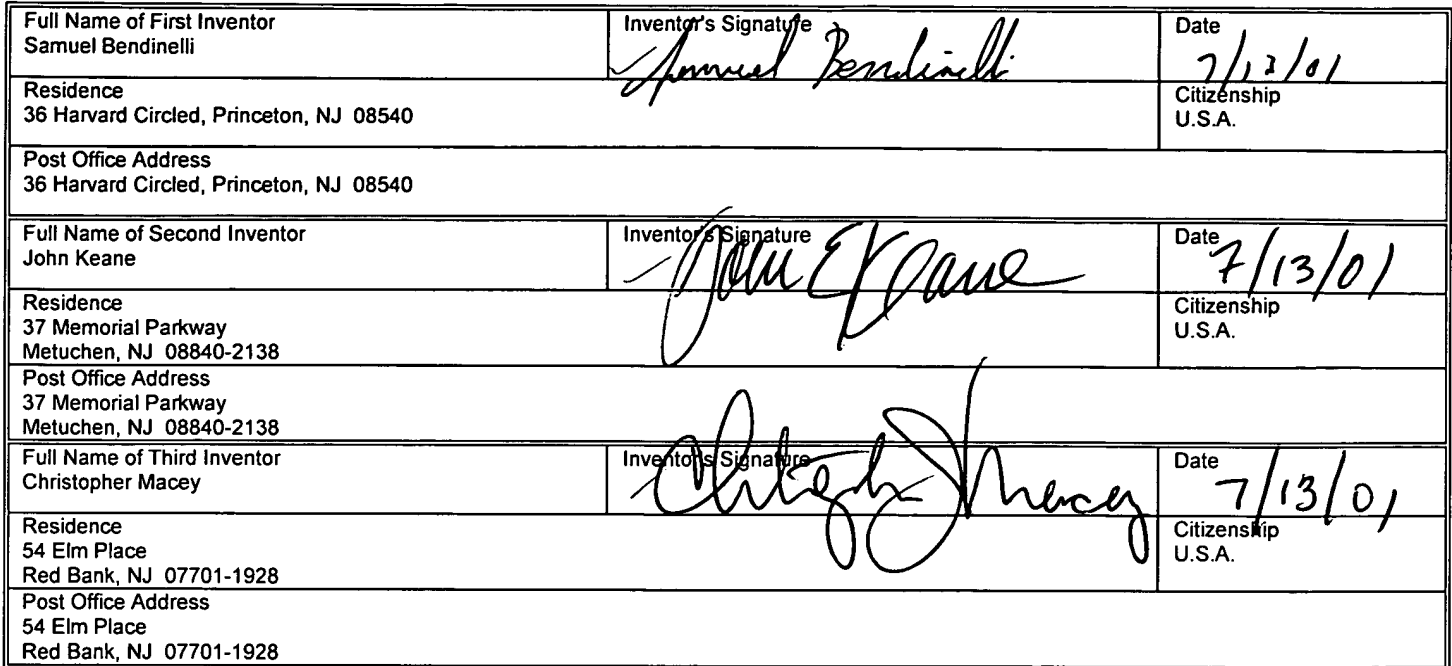 Full Name of First Inventor
Samuel Bendinelli
Inventor's Signature
Samuel Bendinelli
Date
7/13/01
Residence
36 Harvard Circled, Princeton, NJ 08540
Citizenship
U.S.A.
Post Office Address
36 Harvard Circled, Princeton, NJ 08540
Full Name of Second Inventor
John Keane
Inventor's Signature
John E Keane
Date
7/13/01
Residence
37 Memorial Parkway
Metuchen, NJ 08840-2138
Citizenship
U.S.A.
Post Office Address
37 Memorial Parkway
Metuchen, NJ 08840-2138
Full Name of Third Inventor
Christopher Macey
Inventor's Signature
Christopher J Macey
Date
7/13/01
Residence
54 Elm Place
Red Bank, NJ 07701-1928
Citizenship
U.S.A.
Post Office Address
54 Elm Place
Red Bank, NJ 07701-1928